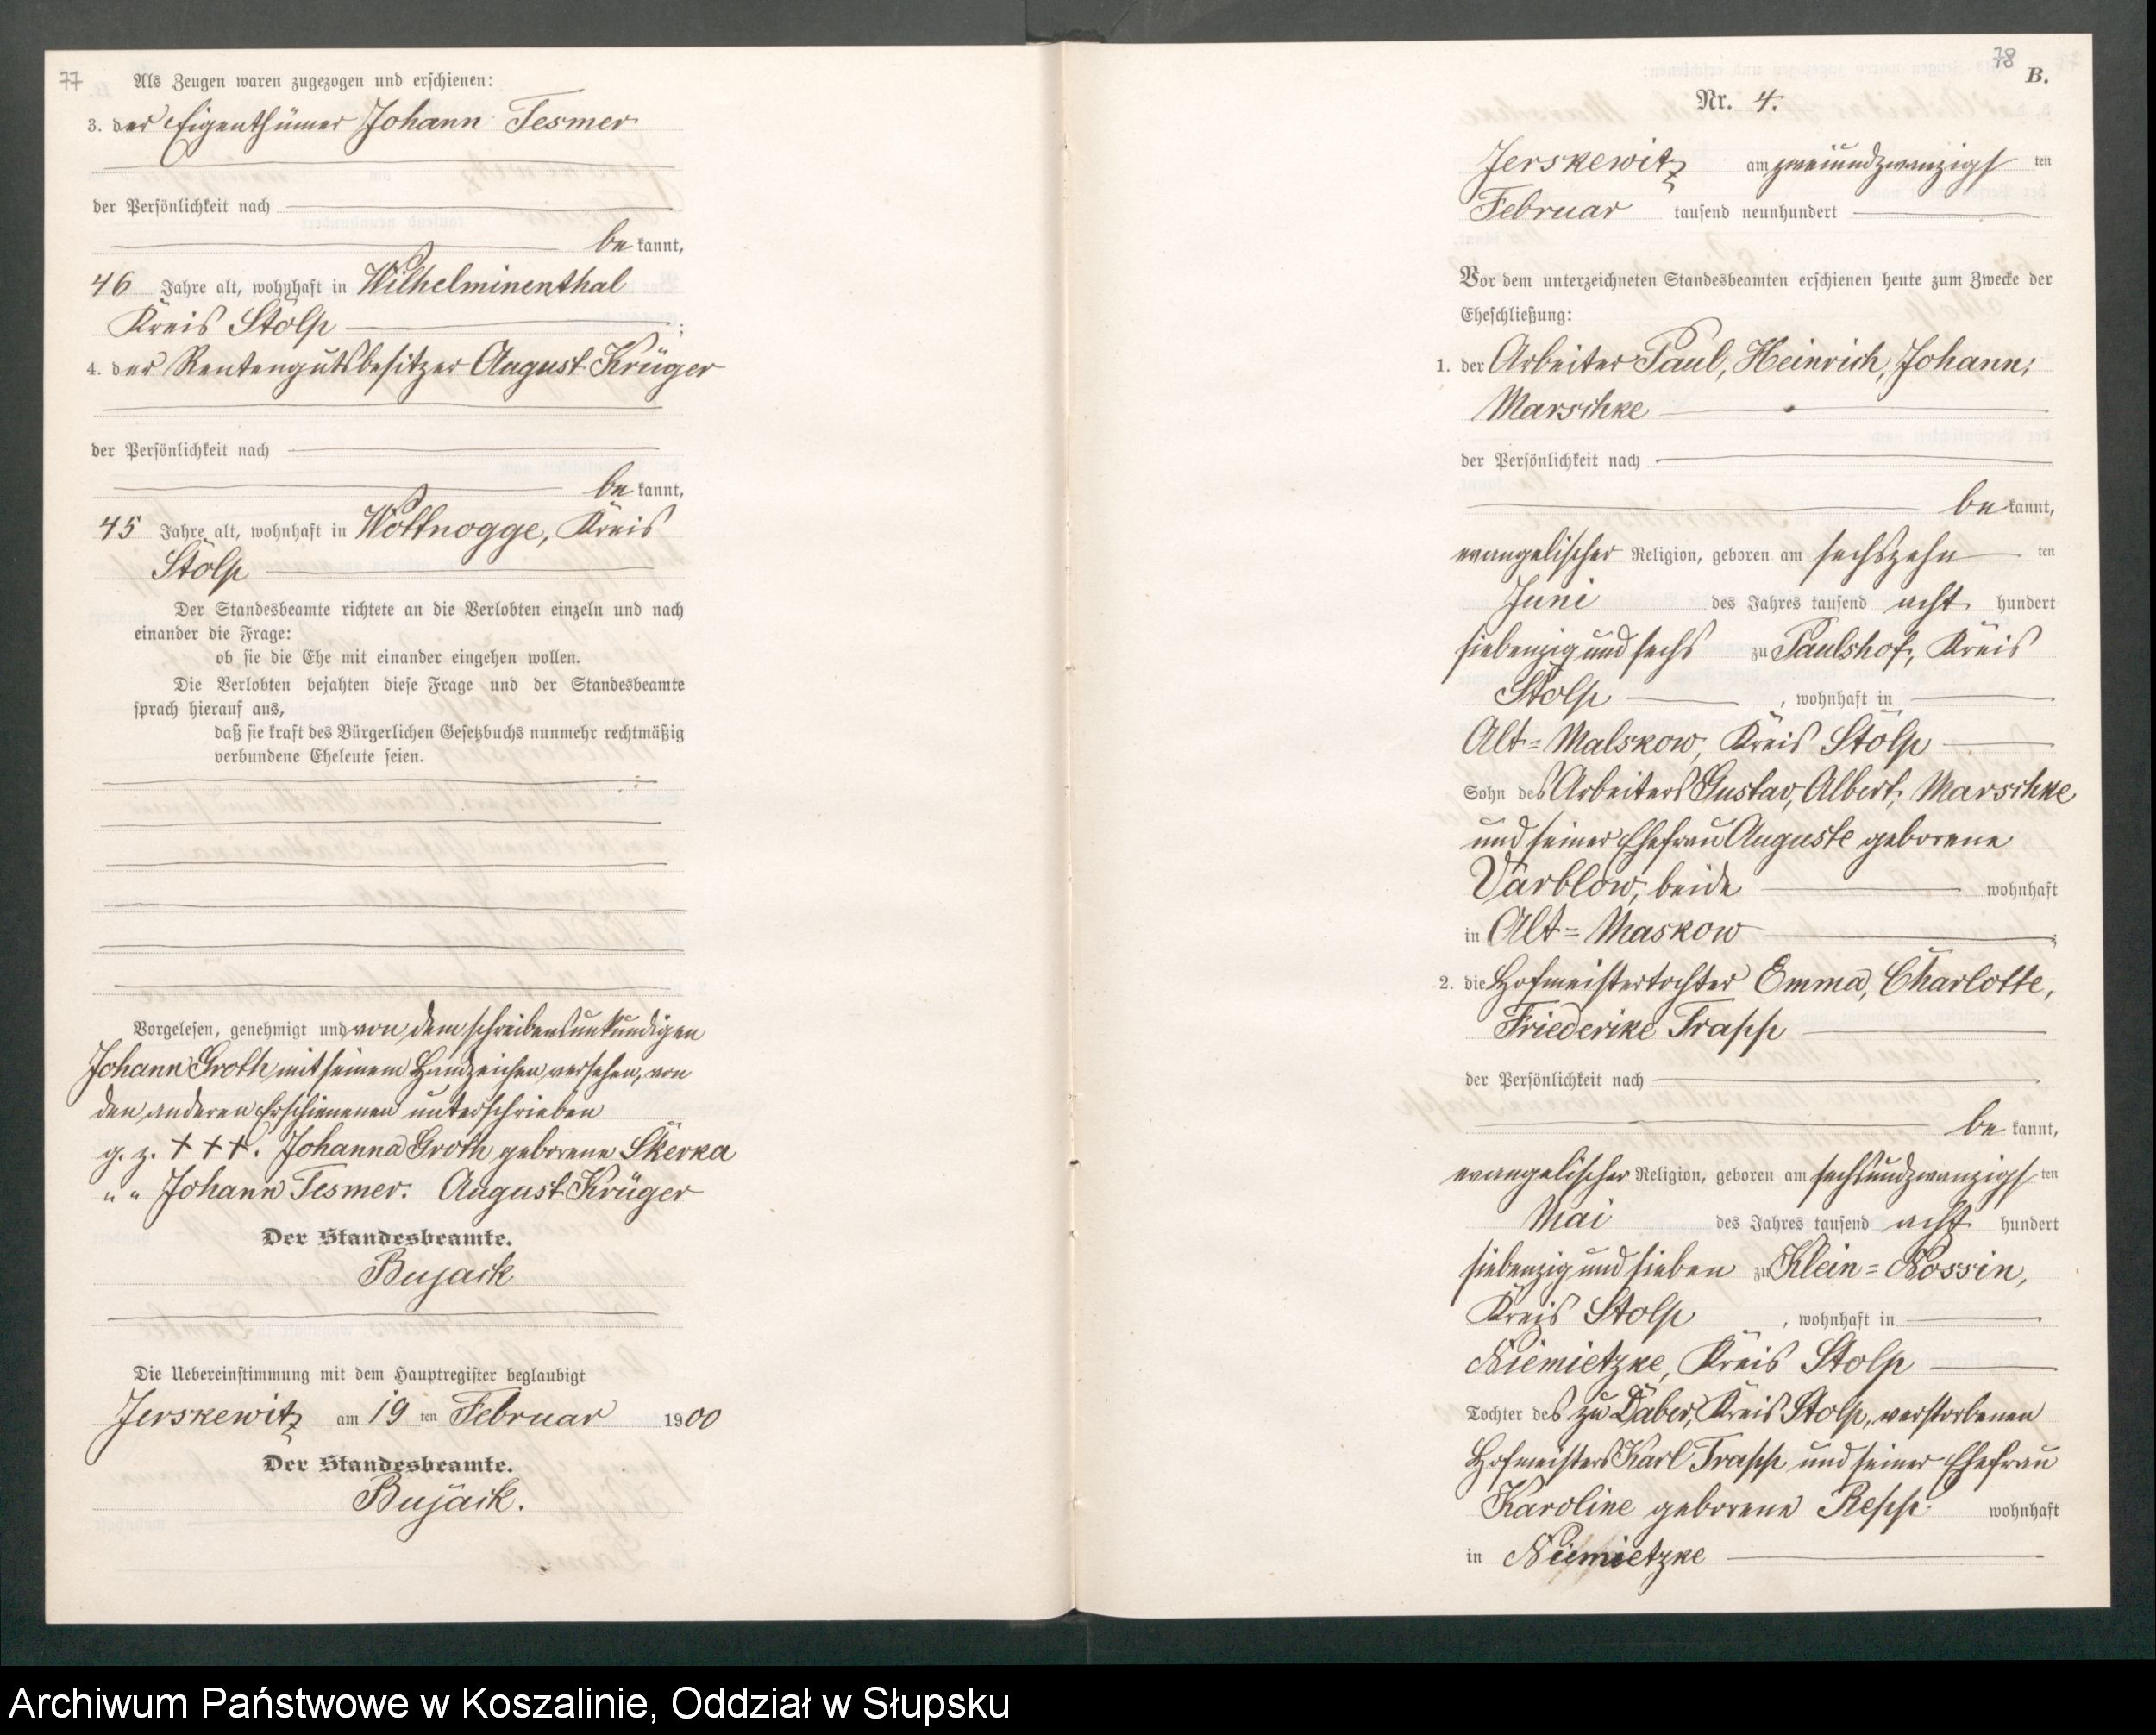 77
Als Zeugen waren zugezogen und erschienen:
3. der Eigenthümer Johann Tesmer
der Persönlichkeit nach
be kannt,
46 Jahre alt, wohnhaft in Wilhelminenthal
Kreis Stolp ;
4. der Rentengutsbesitzer August Krüger
der Persönlichkeit nach
be kannt,
45 Jahre alt, wohnhaft in Wottnogge, Kreis
Stolp
Der Standesbeamte richtete an die Verlobten einzeln und nach
einander die Frage:
ob sie die Ehe mit einander eingehen wollen.
Die Verlobten bejahten diese Frage und der Standesbeamte
sprach hierauf aus,
daß sie kraft des Bürgerlichen Gesetzbuchs nunmehr rechtmäßig
verbundene Eheleute seien.
Vorgelesen, genehmigt und von dem schreibensunkundigen
Johann Groth mit seinem Handzeichen versehen, von
den anderen Erschienenen unterschrieben
g. z. +++. Johanna Groth geborene Skerka
" " Johann Tesmer. August Krüger
Der Standesbeamte.
Bujack
Die Uebereinstimmung mit dem Hauptregister beglaubigt
Jerskewitz am 19 ten Februar 1900
Der Standesbeamte.
Bujack.
78
B.
Nr. 4.
Jerskewitz am zweiundzwanzigsten
Februar tausend neunhundert
Vor dem unterzeichneten Standesbeamten erschienen heute zum Zwecke der
Eheschließung:
1. der Arbeiter Paul, Heinrich, Johann,
Marschke
der Persönlichkeit nach
be kannt,
evangelischer Religion, geboren am sechszehn ten
Juni des Jahres tausend acht hundert
siebenzig und sechs zu Paulshof, Kreis
Stolp , wohnhaft in
Alt=Malskow, Kreis Stolp
Sohn des Arbeiters Gustav, Albert, Marschke
und seiner Ehefrau Auguste geborene
Varblow, beide wohnhaft
in Alt=Maskow ;
2. die Hofmeistertochter Emma, Charlotte,
Friederike Trapp
der Persönlichkeit nach
be kannt,
evangelischer Religion, geboren am sechsundzwanzigsten
Mai des Jahres tausend acht hundert
siebenzig und sieben zu Klein=Nossin,
Kreis Stolp , wohnhaft in
Niemietzke, Kreis Stolp
Tochter des zu Daber, Kreis Stolp, verstorbenen
Hofmeisters Karl Trapp und seiner Ehefrau
Karoline geborene Repp wohnhaft
in Niemietzke
Archiwum Państwowe w Koszalinie, Oddział w Słupsku